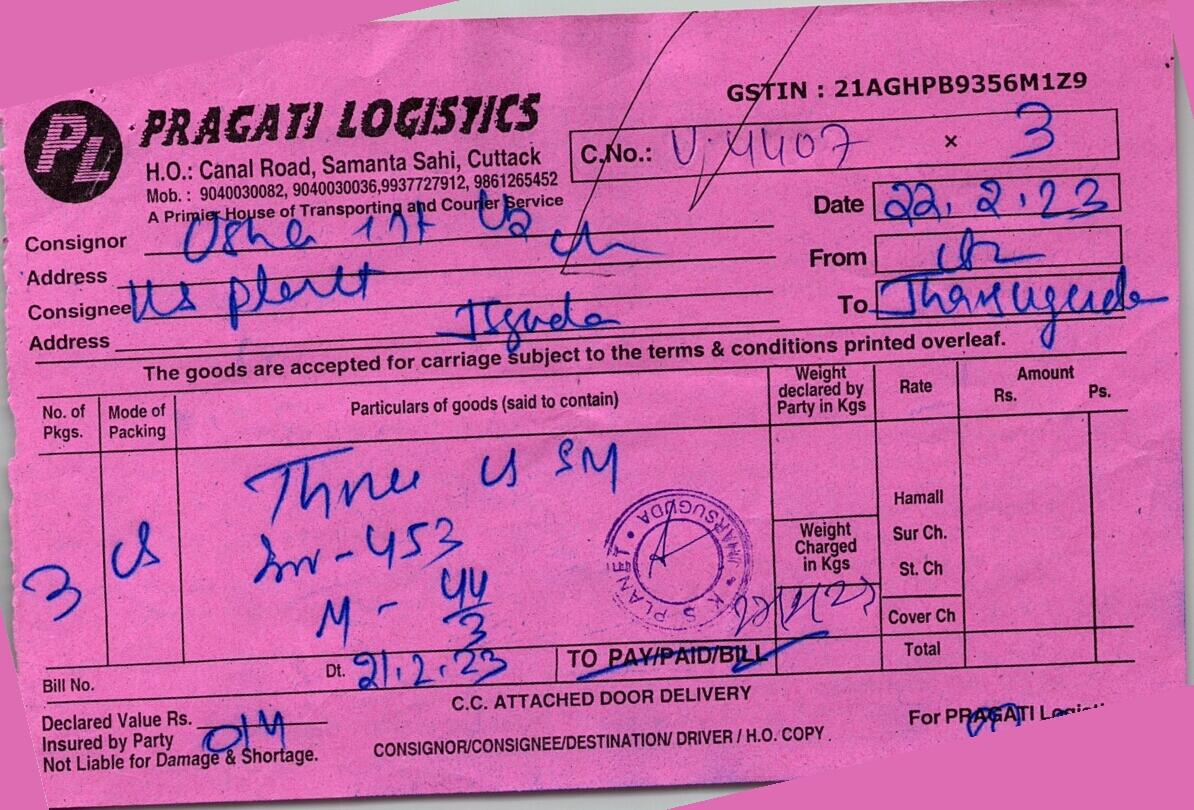 PL
PRAGATI LOGISTICS
GSTIN : 21AGHPB9356M1Z9
H.O.: Canal Road, Samanta Sahi, Cuttack
Mob. : 9040030082, 9040030036,9937727912, 9861265452
A Primier House of Transporting and Courier Service
C.No.: U; 4407 × 3
Date 22.2.23
Consignor
From
Address
Consignee
To Jharsuguda
Address
The goods are accepted for carriage subject to the terms & conditions printed overleaf.
No. of Pkgs. Mode of Packing Particulars of goods (said to contain) Weight declared by Party in Kgs Rate Amount Rs. Ps.
Three SM
453
M - 44
3
3
K S PLANET • JHARSUGUDA •
Weight Charged in Kgs
Hamall
Sur Ch.
St. Ch
Cover Ch
Total
Bill No. Dt. 21.2.23 TO PAY/PAID/BILL
C.C. ATTACHED DOOR DELIVERY
Declared Value Rs.
Insured by Party
Not Liable for Damage & Shortage.
CONSIGNOR/CONSIGNEE/DESTINATION/ DRIVER / H.O. COPY
For PRAGATI